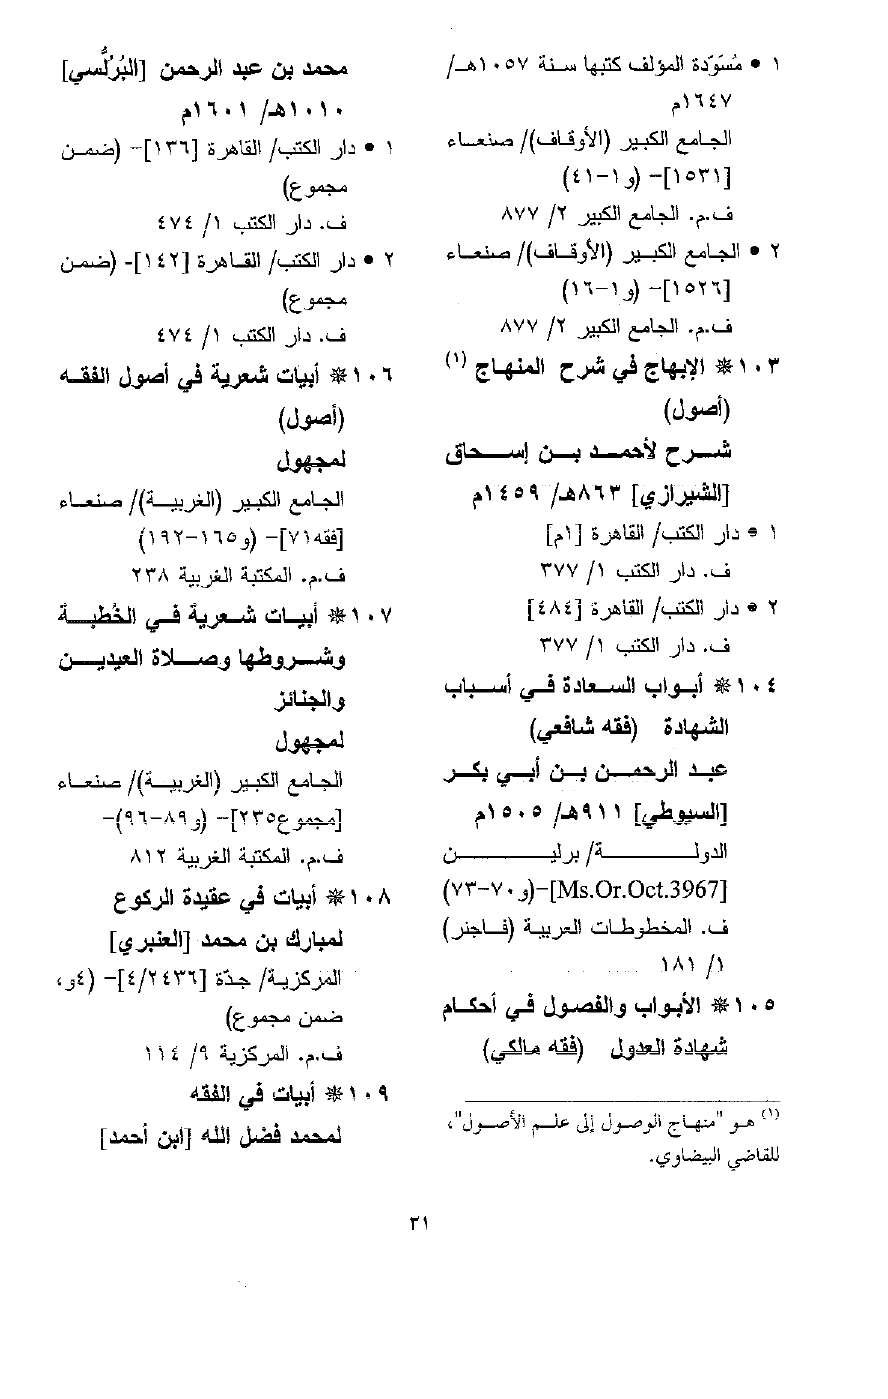 ١ • مُسَوّدة المؤلف كتبها سنة ١٠٥٧هـ/
١٦٤٧م
الجامع الكبير (الأوقاف)/ صنعاء
[١٥٣١]- (و١-٤١)
ف.م. الجامع الكبير ٢/ ٨٧٧
٢ • الجامع الكبير (الأوقاف)/ صنعاء
[١٥٢٦]- (و١-١٦)
ف.م. الجامع الكبير ٢/ ٨٧٧
١٠٣* الإبهاج في شرح المنهاج (١)
(أصول)
شرح لأحمد بن إسحاق
[الشيرازي] ٨٦٣هـ/ ١٤٥٩م
١ • دار الكتب/ القاهرة [١م]
ف. دار الكتب ١/ ٣٧٧
٢ • دار الكتب/ القاهرة [٤٨٤]
ف. دار الكتب ١/ ٣٧٧
١٠٤* أبواب السعادة في أسباب
الشهادة (فقه شافعي)
عبد الرحمن بن أبي بكر
[السيوطي] ٩١١هـ/ ١٥٠٥م
الدولة/ برلين
[Ms.Or.Oct.3967]-(و٧٠-٧٣)
ف. المخطوطات العربية (فاجنر)
١/ ١٨١
١٠٥* الأبواب والفصول في أحكام
شهادة العدول (فقه مالكي)
(١) هو "منهاج الوصول إلى علم الأصول"،
للقاضي البيضاوي.
محمد بن عبد الرحمن [البُرُلُّسي]
١٠١٠هـ/ ١٦٠١م
١ • دار الكتب/ القاهرة [١٣٦]- (ضمن
مجموع)
ف. دار الكتب ١/ ٤٧٤
٢ • دار الكتب/ القاهرة [١٤٢]- (ضمن
مجموع)
ف. دار الكتب ١/ ٤٧٤
١٠٦* أبيات شعرية في أصول الفقه
(أصول)
لمجهول
الجامع الكبير (الغربية)/ صنعاء
[فقه٧١]- (و١٦٥-١٩٢)
ف.م. المكتبة الغربية ٢٣٨
١٠٧* أبيات شعرية في الخُطبة
وشروطها وصلاة العيدين
والجنائز
لمجهول
الجامع الكبير (الغربية)/ صنعاء
[مجموع٢٣٥]- (و٨٩-٩٦)-
ف.م. المكتبة الغربية ٨١٢
١٠٨* أبيات في عقيدة الركوع
لمبارك بن محمد [العنبري]
المركزية/ جدّة [٤/٢٤٣٦]- (٤و،
ضمن مجموع)
ف.م. المركزية ٩/ ١١٤
١٠٩* أبيات في الفقه
لمحمد فضل الله [ابن أحمد]
٢١